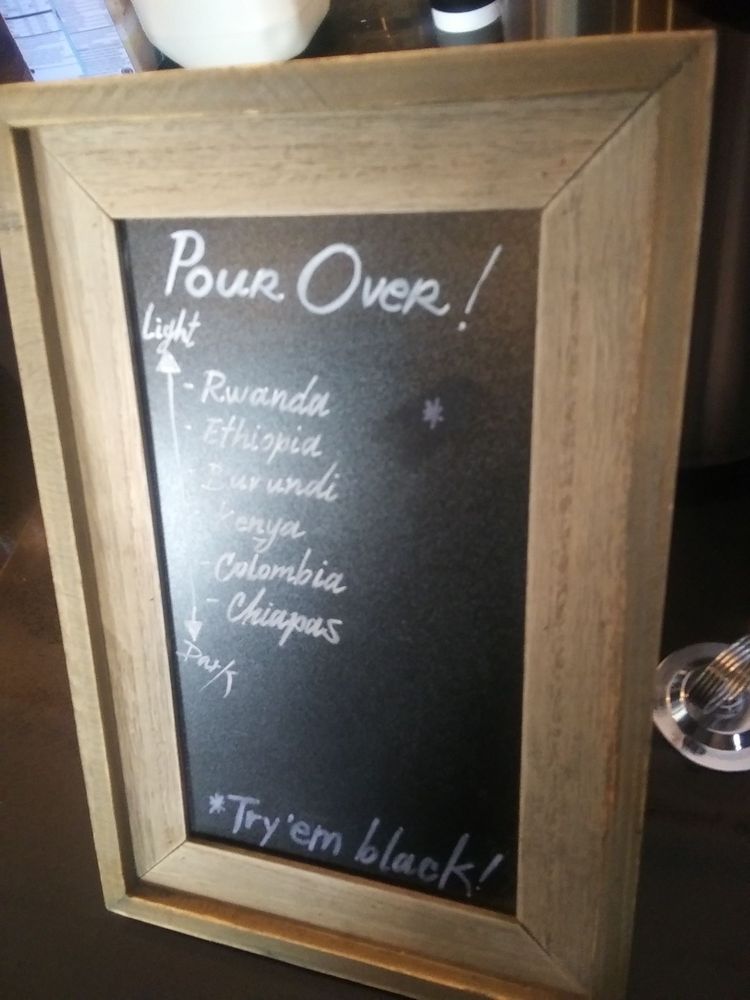 Pour Over!
Light
- Rwanda
- Ethiopia *
- Burundi
- Kenya
- Colombia
- Chiapas
Dark
*Try 'em black!